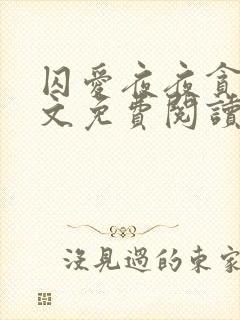 囚愛夜夜貪
文免費閱讀
沒見過的東家